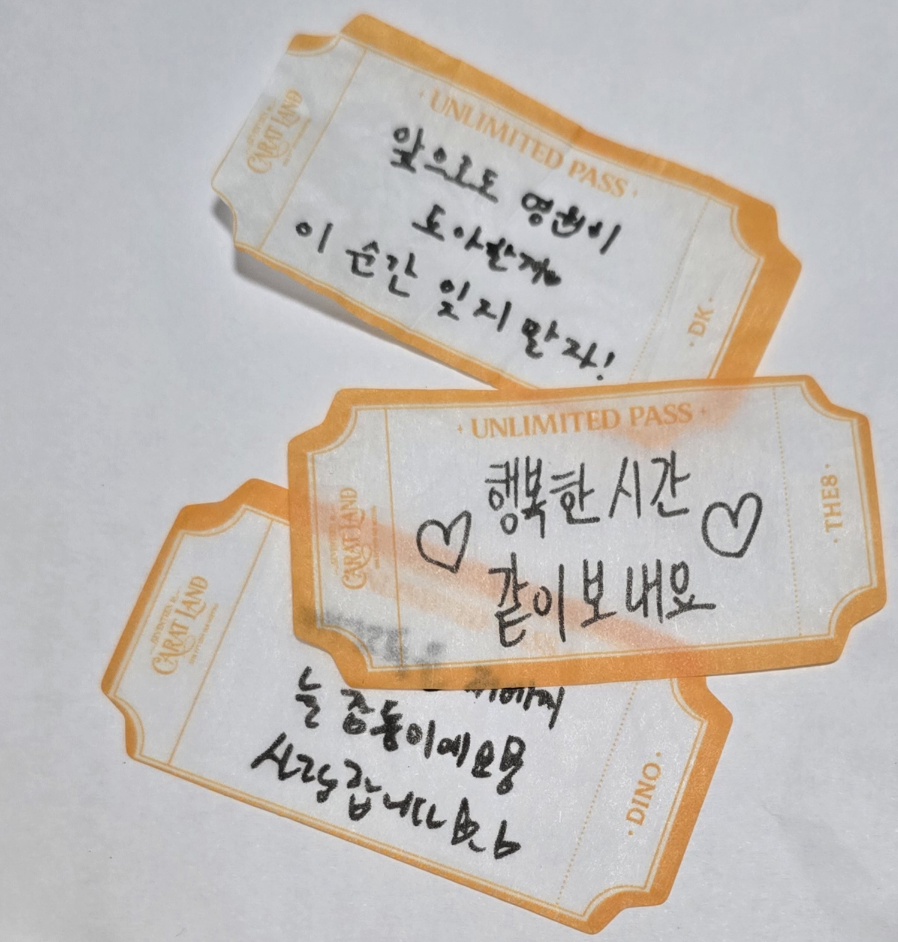 CARAT LAND
· UNLIMITED PASS ·
앞으로도 영원히
이 순간 잊지 말자!
· DK ·
CARAT LAND
· UNLIMITED PASS ·
행복한 시간
같이 보내요
· THE8 ·
CARAT LAND
늘 감동이에요
사랑합니다
· DINO ·